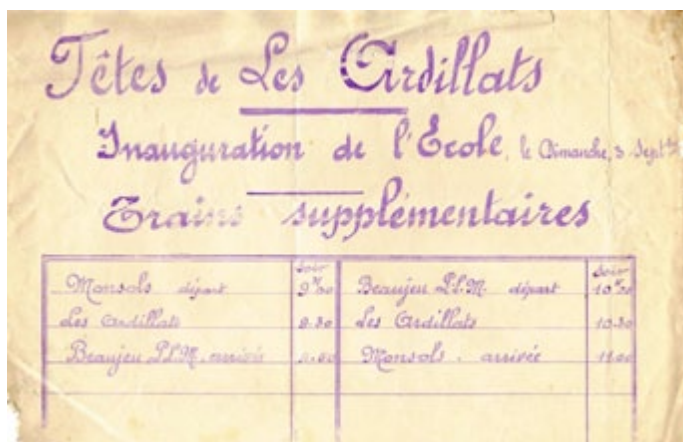 Fêtes de Les Ardillats
Inauguration de l'Ecole, le Dimanche, 3 Septbre
Trains supplémentaires
soir
soir
Monsols départ
Beaujeu P.L.M. départ
Les Ardillats
Les Ardillats 10.30
Beaujeu P.L.M. arrivée
Monsols . arrivée 11.00